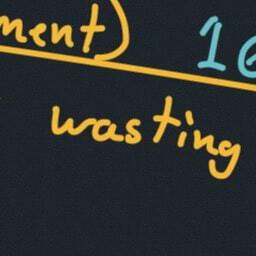 ment) 10
wasting